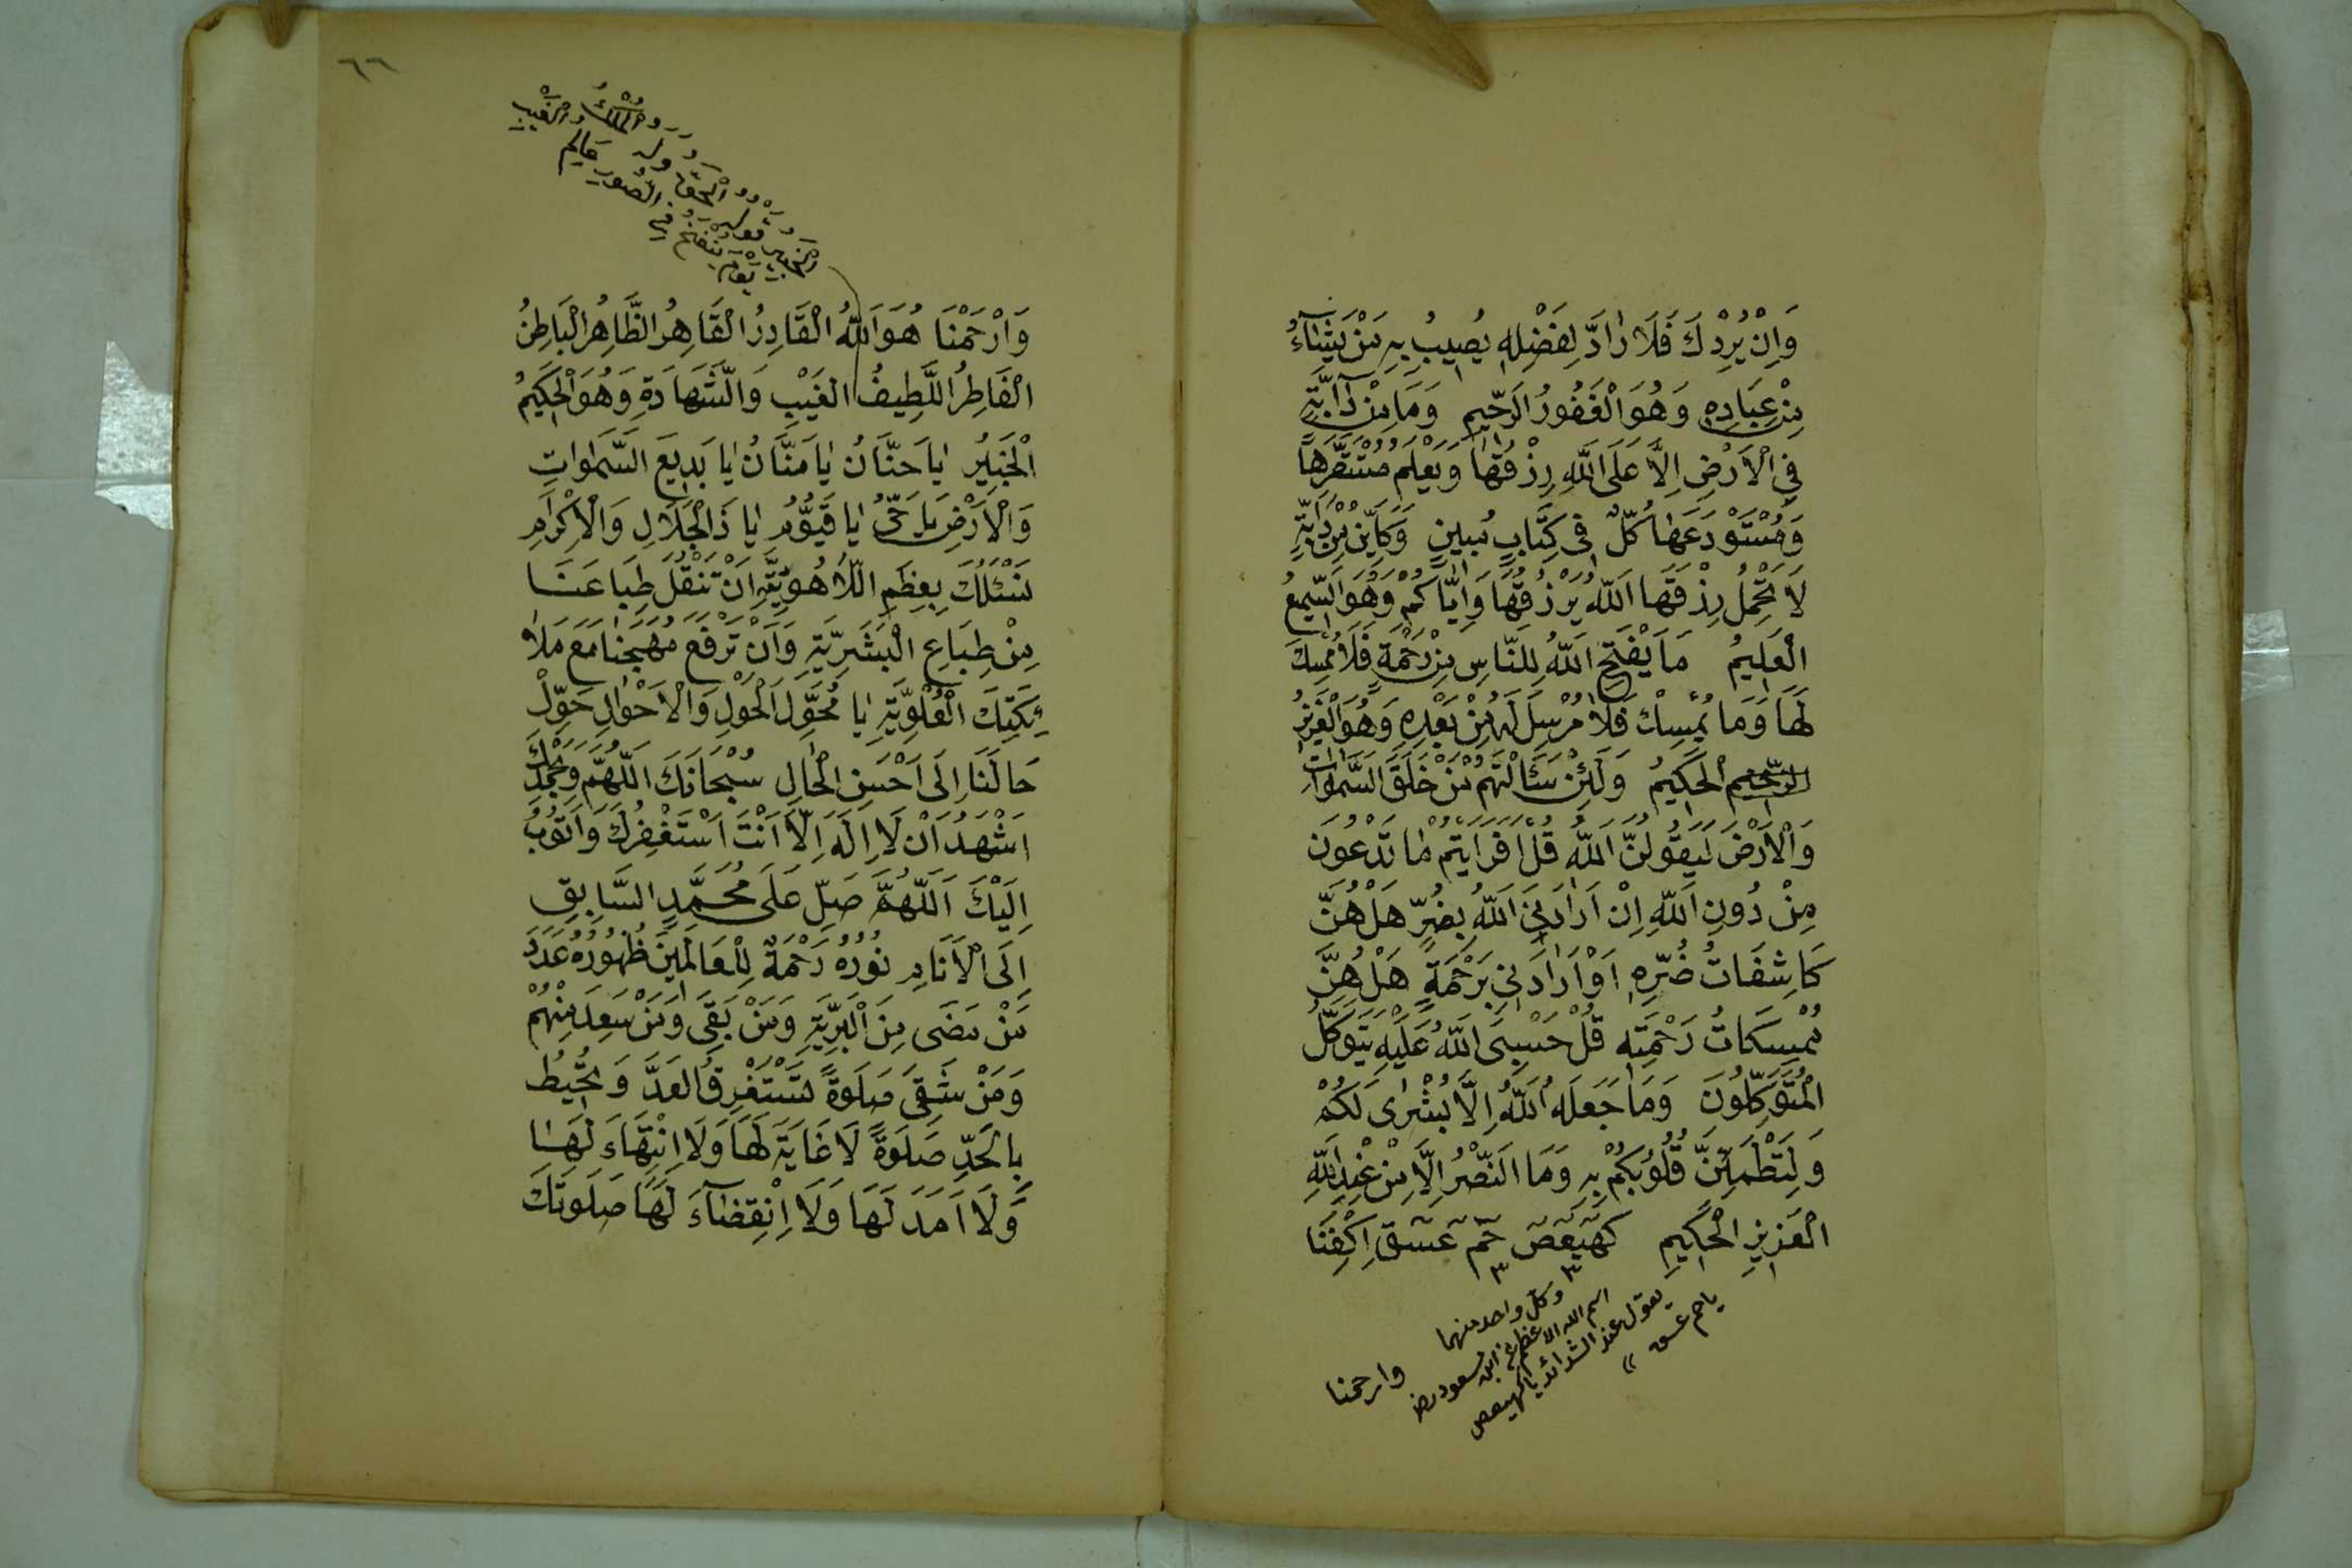 وَاِنْ يُرِدْكَ فَلَا رٰادَّ لِفَضْلِهِ يُصِيبُ بِهِ مَنْ يَشَآءُ
مِنْ عِبَادِهِ وَهُوَ الْغَفُورُ الرَّحِيمُ وَمَا مِنْ دَآبَّةٍ
فِي الْاَرْضِ اِلَّا عَلَى اللّٰهِ رِزْقُهَا وَيَعْلَمُ مُسْتَقَرَّهَا
وَمُسْتَوْدَعَهَا كُلٌّ فِى كِتَابٍ مُبِينٍ وَكَاَيِّنْ مِنْ دَابَّةٍ
لَا تَحْمِلُ رِزْقَهَا اَللّٰهُ يَرْزُقُهَا وَاِيَّاكُمْ وَهُوَ السَّمِيعُ
الْعَلِيمُ مَا يَفْتَحِ اللّٰهُ لِلنَّاسِ مِنْ رَحْمَةٍ فَلَا مُمْسِكَ
لَهَا وَمَا يُمْسِكْ فَلَا مُرْسِلَ لَهُ مِنْ بَعْدِهِ وَهُوَ الْعَزِيزُ
الرَّحِيمُ الْحَكِيمُ وَلَئِنْ سَئَالْتَهُمْ مَنْ خَلَقَ السَّمٰوَاتِ
وَالْاَرْضَ لَيَقُولُنَّ اللّٰهُ قُلْ اَفَرَاَيْتُمْ مٰا تَدْعُونَ
مِنْ دُونِ اللّٰهِ اِنْ اَرَادَنِيَ اللّٰهُ بِضُرٍّ هَلْ هُنَّ
كَاشِفَاتُ ضُرِّهِ اَوْ اَرٰادَنِي بِرَحْمَةٍ هَلْ هُنَّ
مُمْسِكَاتُ رَحْمَتِهِ قُلْ حَسْبِىَ اللّٰهُ عَلَيْهِ يَتَوَكَّلُ
الْمُتَوَكِّلُونَ وَمَا جَعَلَهُ اللّٰهُ اِلَّا بُشْرٰى لَكُمْ
وَلِتَطْمَئِنَّ قُلُوبُكُمْ بِهِ وَمَا النَّصْرُ اِلَّا مِنْ عِنْدِ اللّٰهِ
الْعَزِيزِ الْحَكِيمِ كٓهٰيٰعٓصٓ حٰمٓ عٓسٓقٓ اِكْفِنَا
وكل واحد منهما
اسم الله الاعظم عن ابن مسعود رض
يقول عند الشدائد يا كهيعص
يا حم عسق
وارحمنا
٦٦
الْخَبِيرُ قوله الْحَقُّ وله الْمُلْكُ
يَوْمَ يُنْفَخُ فِي الصُّورِ عَالِمُ الْغَيْبِ
وَارْحَمْنَا هُوَ اَللّٰهُ الْقَادِرُ الْقَاهِرُ الظَّاهِرُ الْبَاطِنُ
الْفَاطِرُ اللَّطِيفُ الْغَيْبِ وَالشَّهَادَةِ وَهُوَ الْحَكِيمُ
الْخَبِيرُ يٰا حَنَّانُ يٰا مَنَّانُ يٰا بَدِيعَ السَّمٰوٰاتِ
وَالْاَرْضِ يٰا حَيُّ يٰا قَيُّومُ يٰا ذَالْجَلَالِ وَالْاِكْرٰامِ
نَسْئَلُكَ بِعِظَمِ اللَّاهُوتِيَّةِ اَنْ تَنْقُلَ طِبَاعَنَا
مِنْ طِبَاعِ الْبَشَرِيَّةِ وَاَنْ تَرْفَعَ مُهَجَنَا مَعَ مَلَا
ئِكَتِكَ الْعُلْوِيَّةِ يٰا مُحَوِّلَ الْحَوْلِ وَالْاَحْوٰالِ حَوِّلْ
حَالَنَا اِلَى اَحْسَنِ الْحٰالِ سُبْحَانَكَ اللّٰهُمَّ وَبِحَمْدِكَ
اَشْهَدُ اَنْ لَا اِلٰهَ اِلَّا اَنْتَ اَسْتَغْفِرُكَ وَاَتُوبُ
اِلَيْكَ اَللّٰهُمَّ صَلِّ عَلَى مُحَمَّدٍ السَّابِقِ
اِلَى الْاَنَامِ نُورُهُ رَحْمَةٌ لِلْعَالَمِينَ ظُهُورُهُ عَدَدَ
مَنْ مَضَى مِنَ الْبَرِيَّةِ وَمَنْ بَقِىَ وَمَنْ سَعِدَ مِنْهُمْ
وَمَنْ شَقِىَ صَلَوةً تَسْتَغْرِقُ الْعَدَّ وَتُحِيطُ
بِالْحَدِّ صَلَوةً لَا غَايَةَ لَهَا وَلَا اِنْتِهَاءَ لَهَا
وَلَا اَمَدَ لَهَا وَلَا اِنْقِضٰآءَ لَهَا صَلَوتَكَ